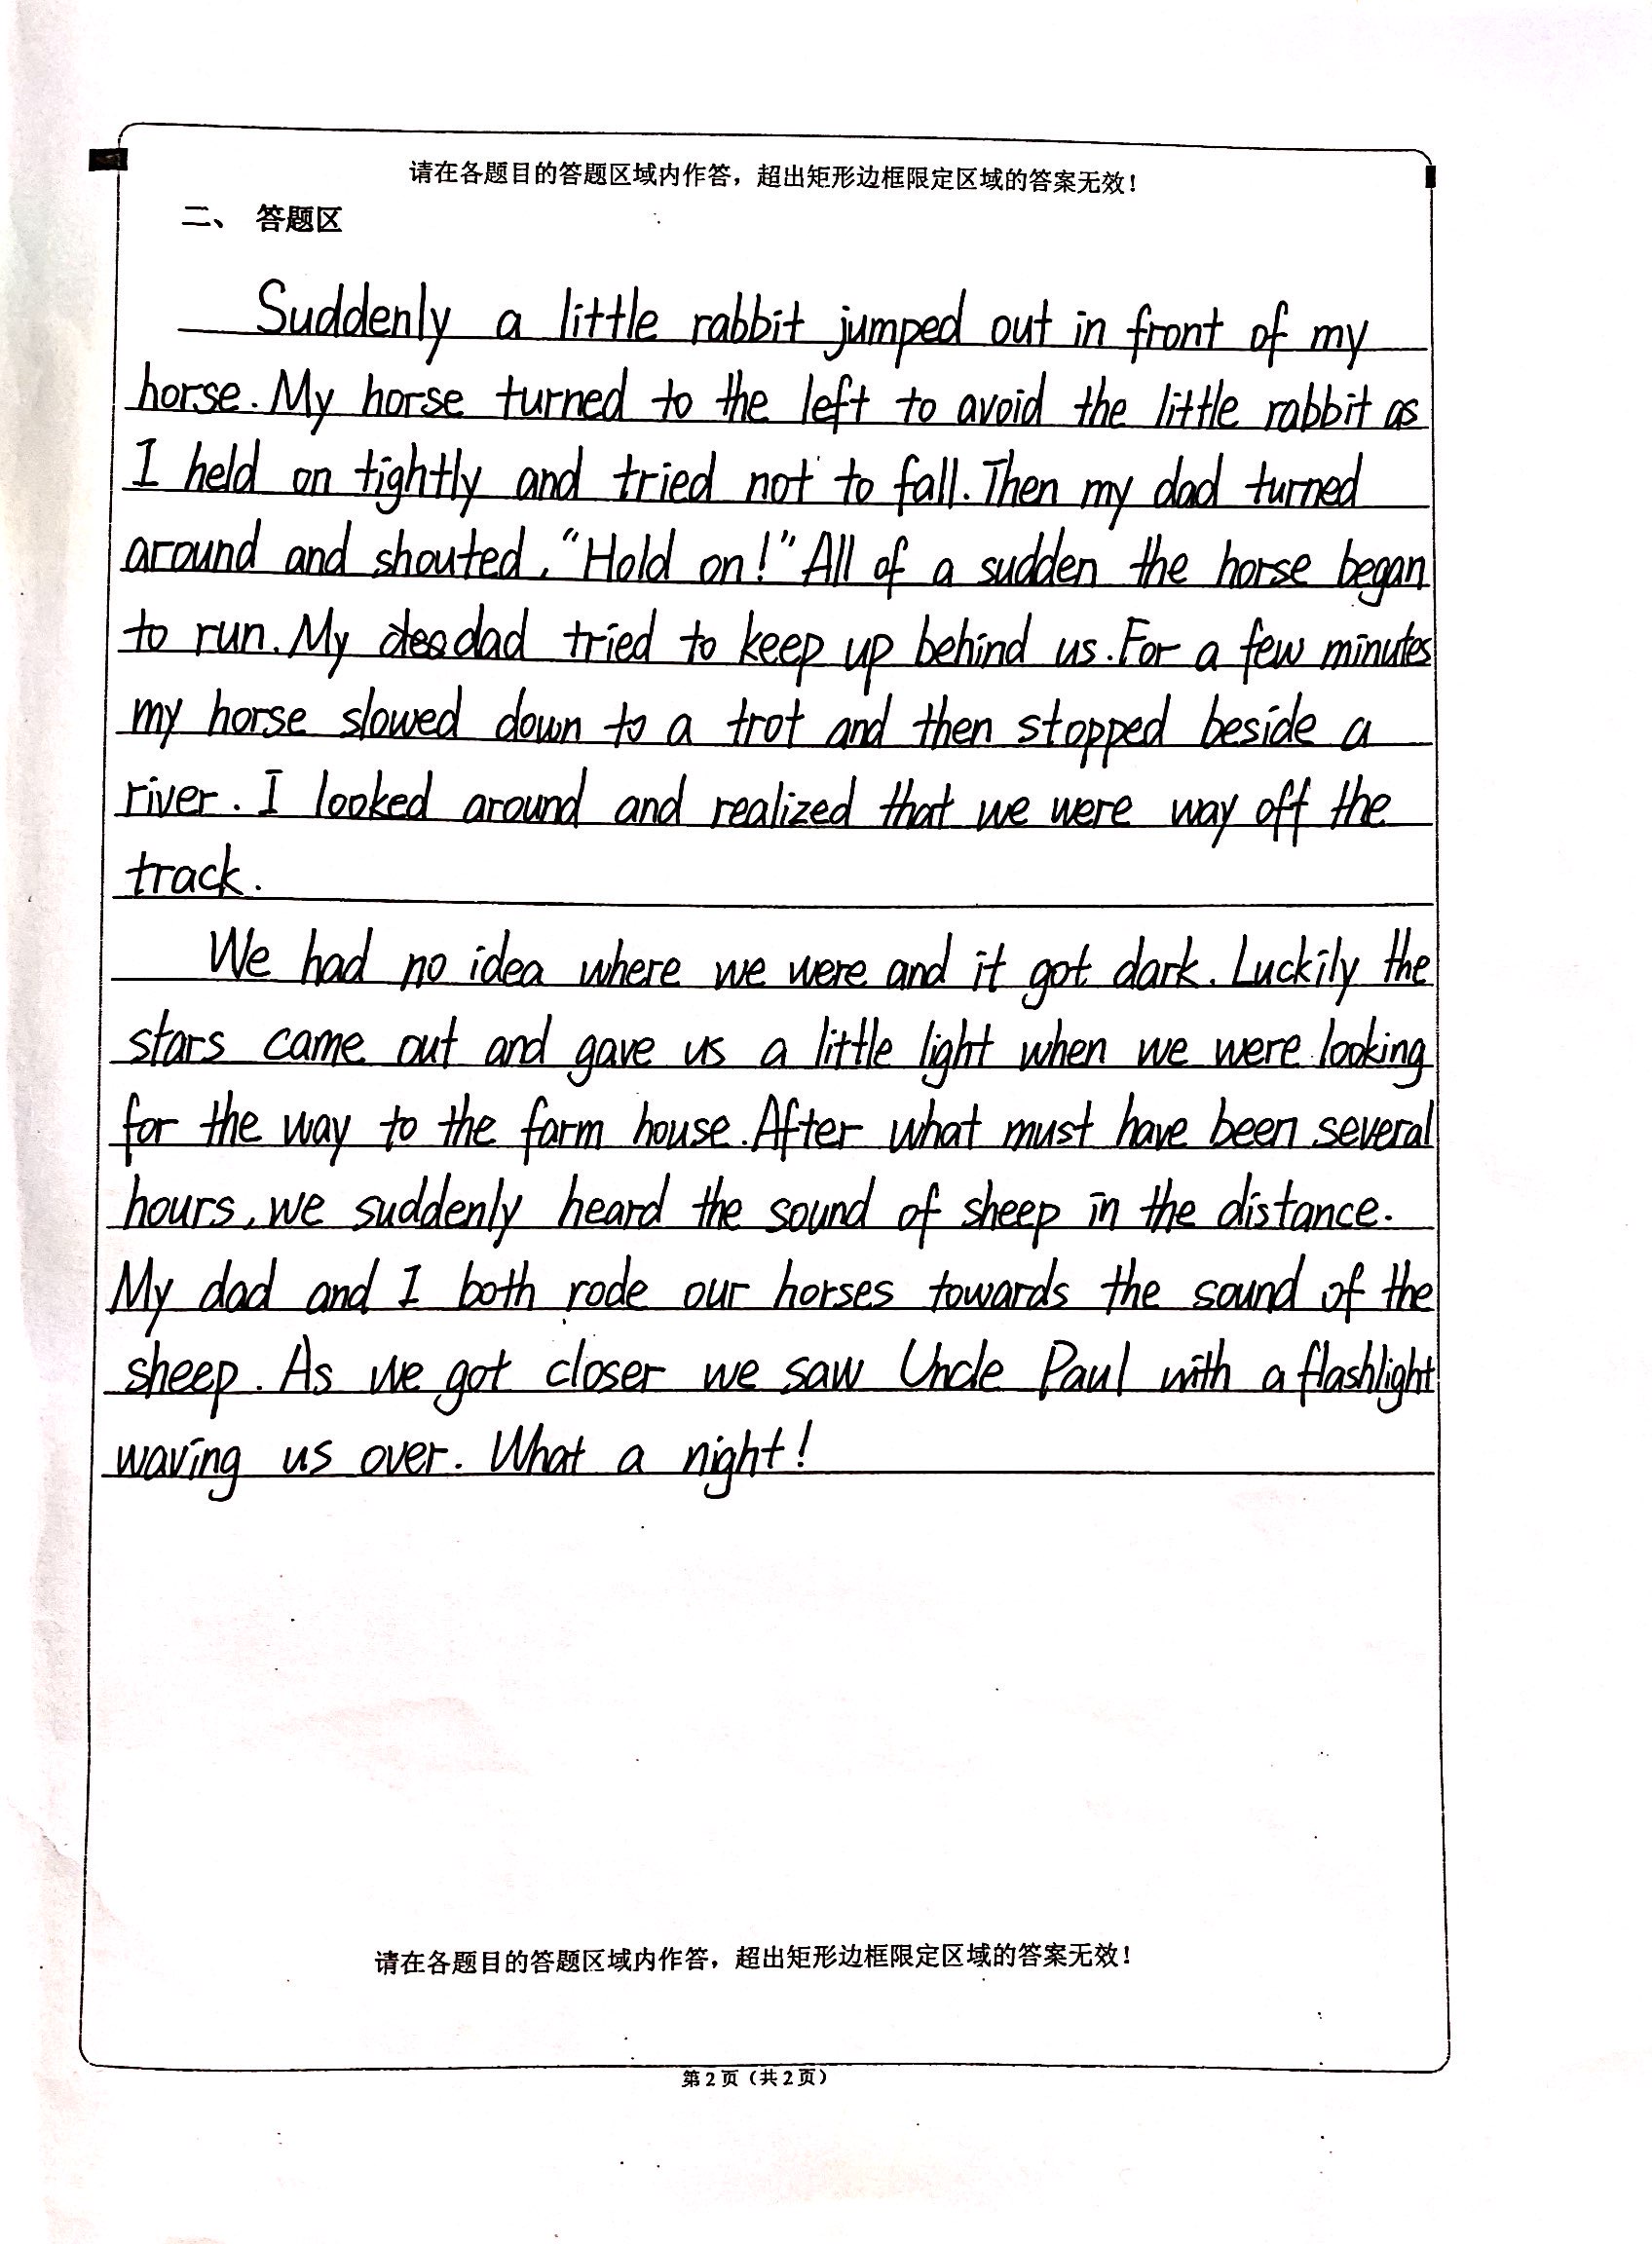 请在各题目的答题区域内作答，超出矩形边框限定区域的答案无效！
二、 答题区
Suddenly a little rabbit jumped out in front of my
horse. My horse turned to the left to avoid the little rabbit as
I held on tightly and tried not to fall. Then my dad turned
around and shouted, "Hold on!" All of a sudden the horse began
to run. My dad tried to keep up behind us. For a few minutes
my horse slowed down to a trot and then stopped beside a
river. I looked around and realized that we were way off the
track.
We had no idea where we were and it got dark. Luckily the
stars came out and gave us a little light when we were looking
for the way to the farm house. After what must have been several
hours, we suddenly heard the sound of sheep in the distance.
My dad and I both rode our horses towards the sound of the
sheep. As we got closer we saw Uncle Paul with a flashlight
waving us over. What a night!
请在各题目的答题区域内作答，超出矩形边框限定区域的答案无效！
第2页（共2页）